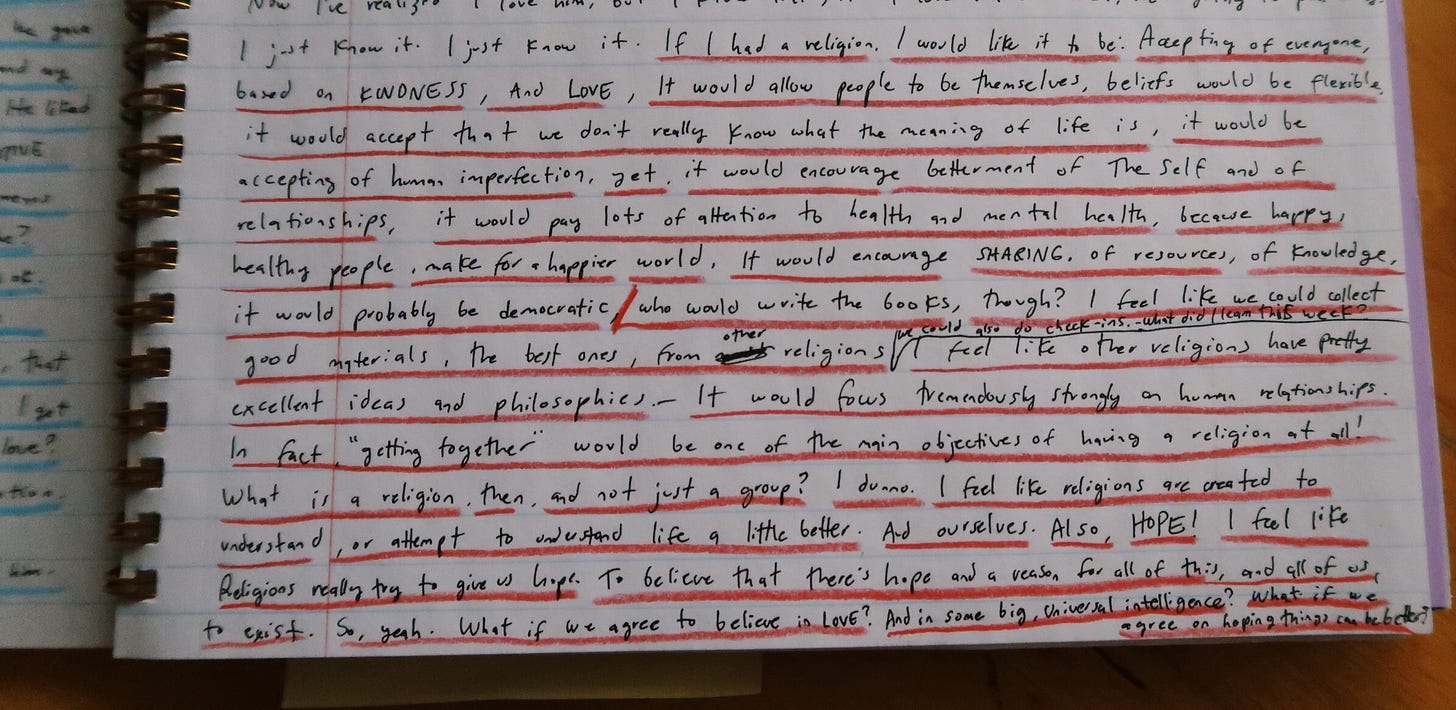 I just know it. I just know it. If I had a religion, I would like it to be: Accepting of everyone,
based on KINDNESS, And LOVE, It would allow people to be themselves, beliefs would be flexible,
it would accept that we don't really know what the meaning of life is, it would be
accepting of human imperfection, yet, it would encourage betterment of The Self and of
relationships, it would pay lots of attention to health and mental health, because happy,
healthy people, make for a happier world, It would encourage SHARING. of resources, of knowledge,
it would probably be democratic/ who would write the books, though? I feel like we could collect
we could also do check-ins.-what did I learn this week?
good materials, the best ones, from other religions I feel like other religions have pretty
excellent ideas and philosophies.- It would focus tremendously strongly on human relationships.
In fact, "getting together" would be one of the main objectives of having a religion at all!
What is a religion, then, and not just a group? I dunno. I feel like religions are created to
understand, or attempt to understand life a little better. And ourselves. Also, HOPE! I feel like
Religions really try to give us hope. To believe that there's hope and a reason for all of this, and all of us,
to exist. So, yeah. What if we agree to believe in LOVE? And in some big, universal intelligence? What if we
agree on hoping things can be better?
He liked
that
I get
love?
him.